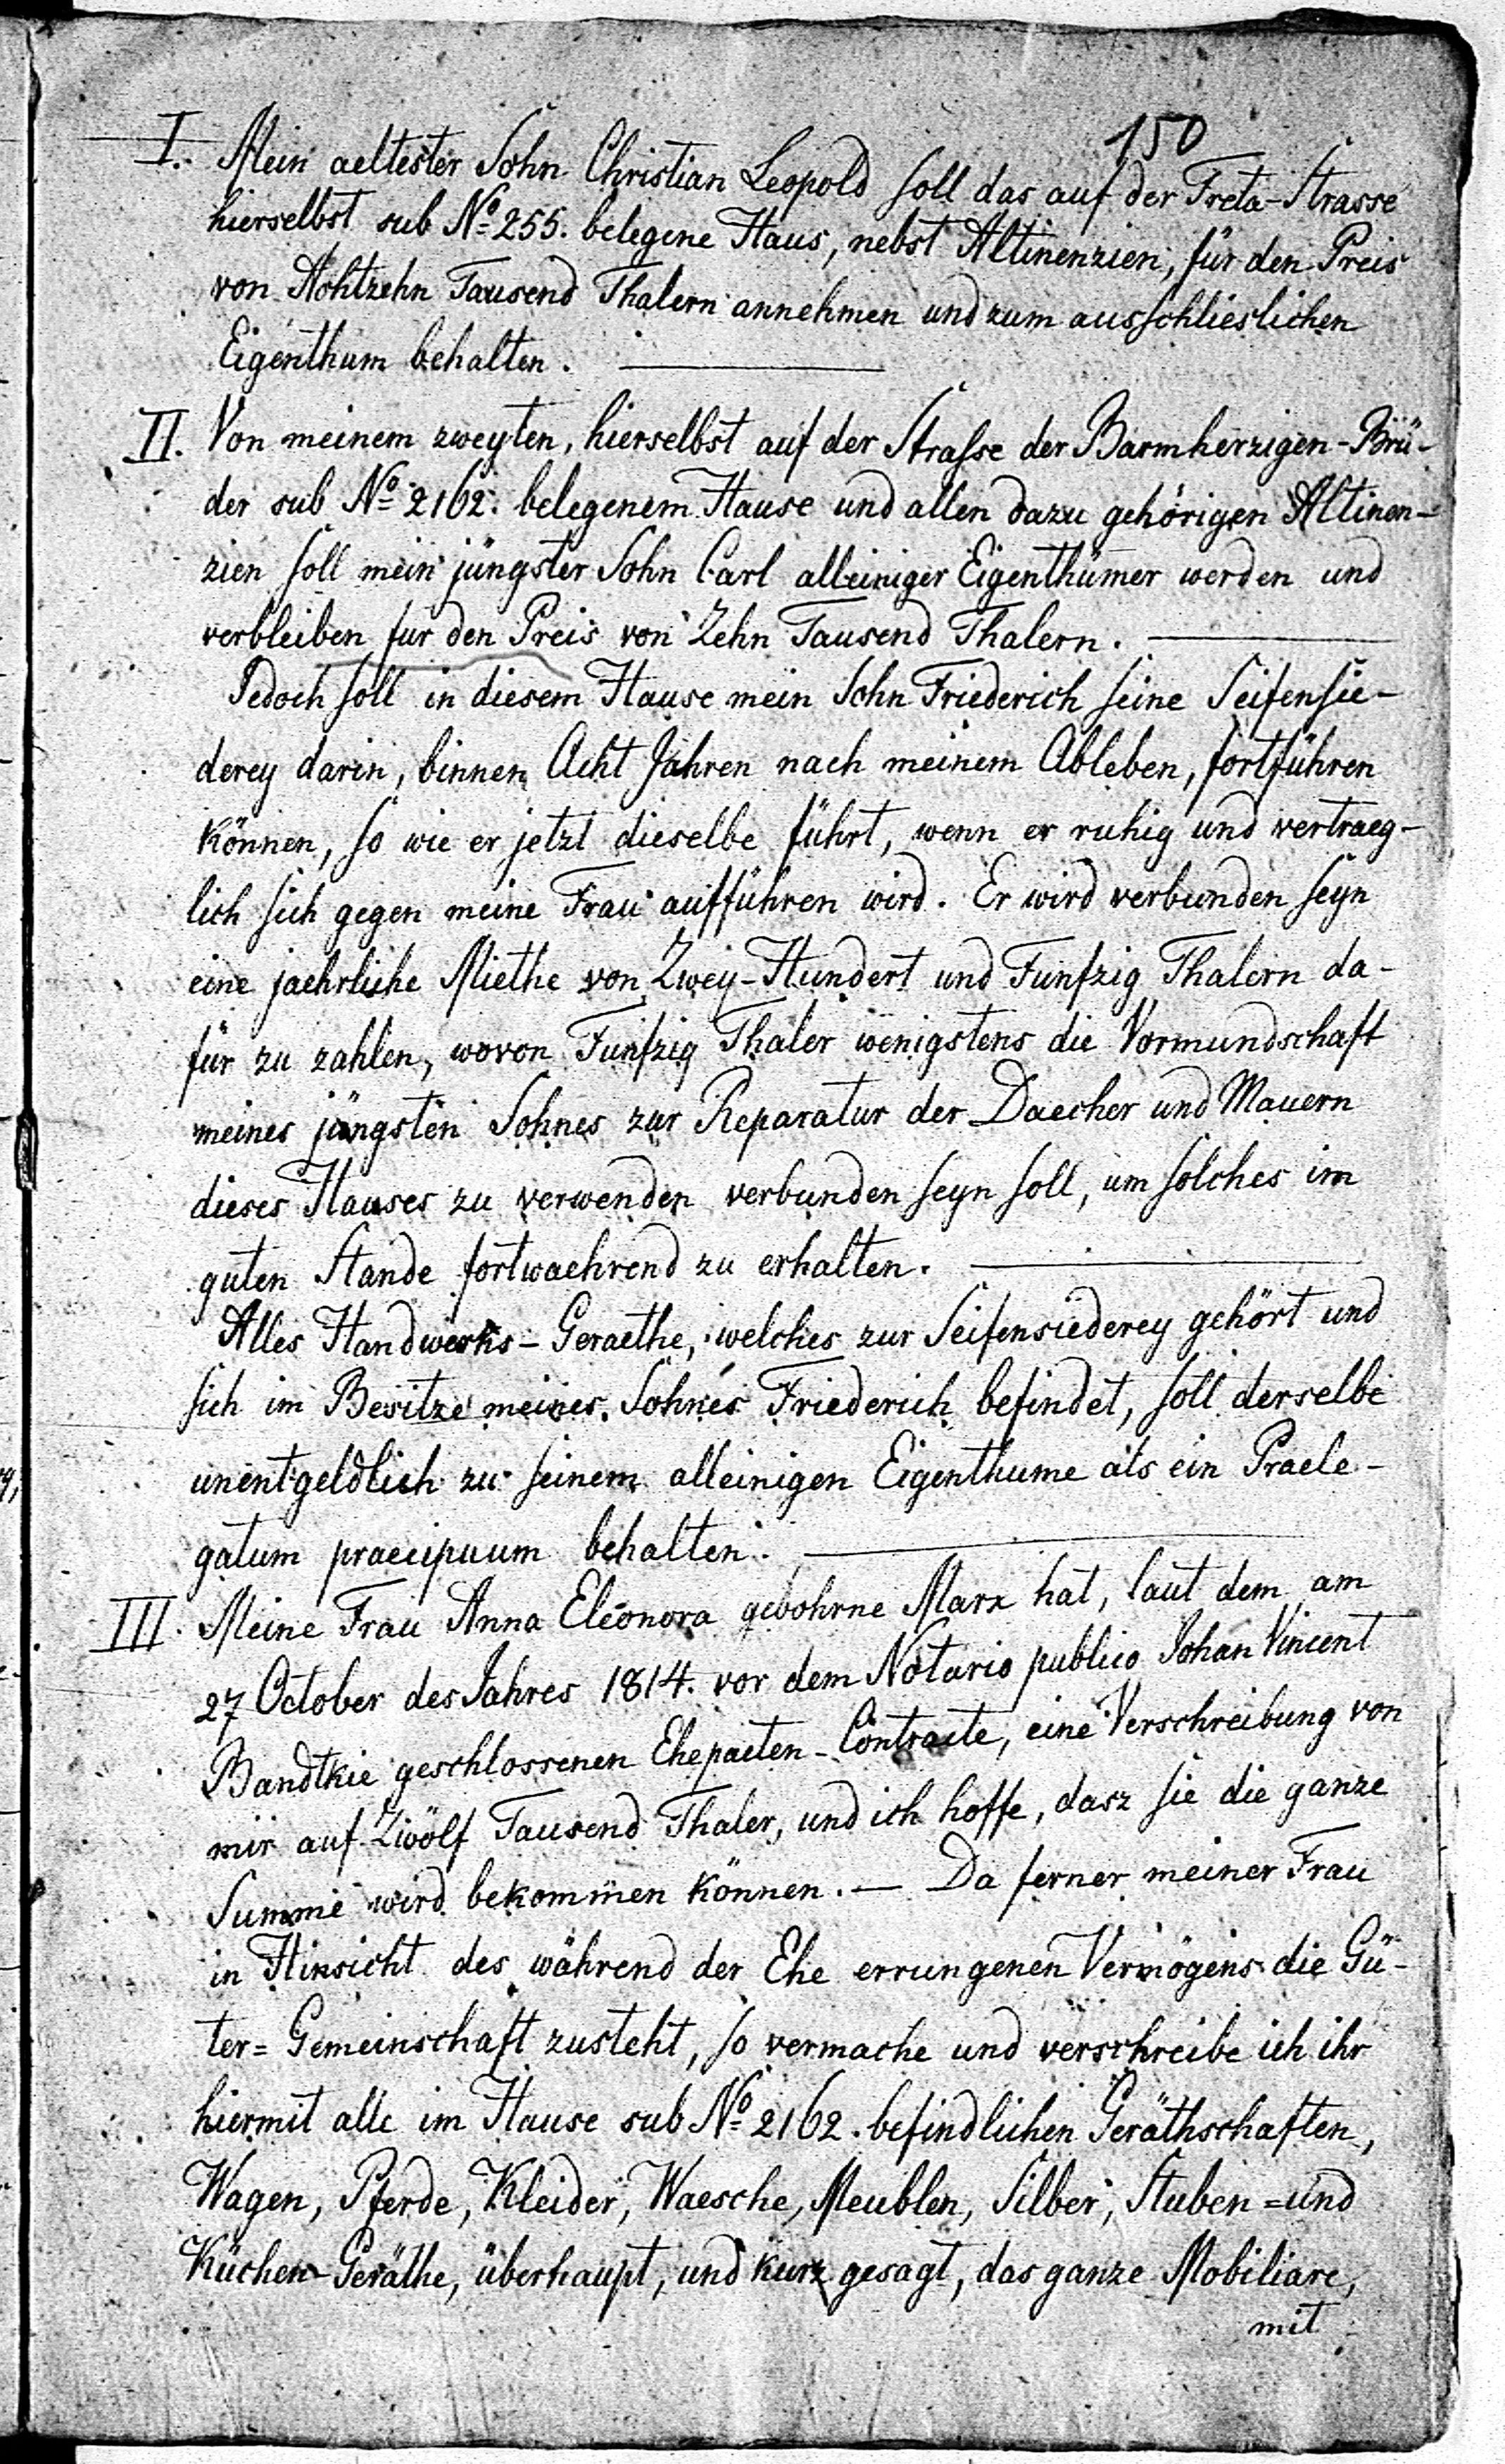 150
I. Mein aeltester Sohn Christian Leopold soll das auf der Freta-Strasse
hierselbst sub No 255. belegene Haus, nebst Attinenzien, für den Preis
von Achtzehn Tausend Thalern annehmen und zum ausschlieslichen
Eigenthum behalten. —
II. Von meinem zweyten, hierselbst auf der Strasse der Barmherzigen-Brü-
der sub No 2162. belegenem Hause und allen dazu gehörigen Attinen-
zien soll mein jüngster Sohn Carl alleiniger Eigenthümer werden und
verbleiben für den Preis von Zehn Tausend Thalern. —
Jedoch soll in diesem Hause mein Sohn Friederich seine Seifensie-
derey darin, binnen Acht Jahren nach meinem Ableben, fortführen
können, so wie er jetzt dieselbe führt, wenn er ruhig und vertraeg-
lich sich gegen meine Frau aufführen wird. Er wird verbunden seyn
eine jaehrliche Miethe von Zwey-Hundert und Funfzig Thalern da-
für zu zahlen, wovon Funfzig Thaler wenigstens die Vormundschaft
meines jüngsten Sohnes zur Reparatur der Daecher und Mauern
dieses Hauses zu verwenden verbunden seyn soll, um solches im
guten Stande fortwaehrend zu erhalten. —
Alles Handwerks-Geraethe, welches zur Seifensiederey gehört und
sich im Besitze meines Sohnes Friederich befindet, soll derselbe
unentgeldlich zu seinem alleinigen Eigenthume als ein Praele-
gatum praecipuum behalten. —
III. Meine Frau Anna Eleonora gebohrne Marx hat, laut dem am
27 October des Jahres 1814. vor dem Notario publico Johan Vincent
Bandtkie geschlossenen Ehepacten-Contracte, eine Verschreibung von
mir auf Zwölf Tausend Thaler, und ich hoffe, dasz sie die ganze
Summe wird bekommen können. — Da ferner meiner Frau
in Hinsicht des während der Ehe errungenen Vermögens die Gü-
ter= Gemeinschaft zusteht, so vermache und verschreibe ich ihr
hiermit alle im Hause sub No 2162. befindlichen Geräthschaften,
Wagen, Pferde, Kleider, Waesche, Meublen, Silber, Stuben=und
Küchen-Geräthe, überhaupt, und kurz gesagt, das ganze Mobiliare,
mit